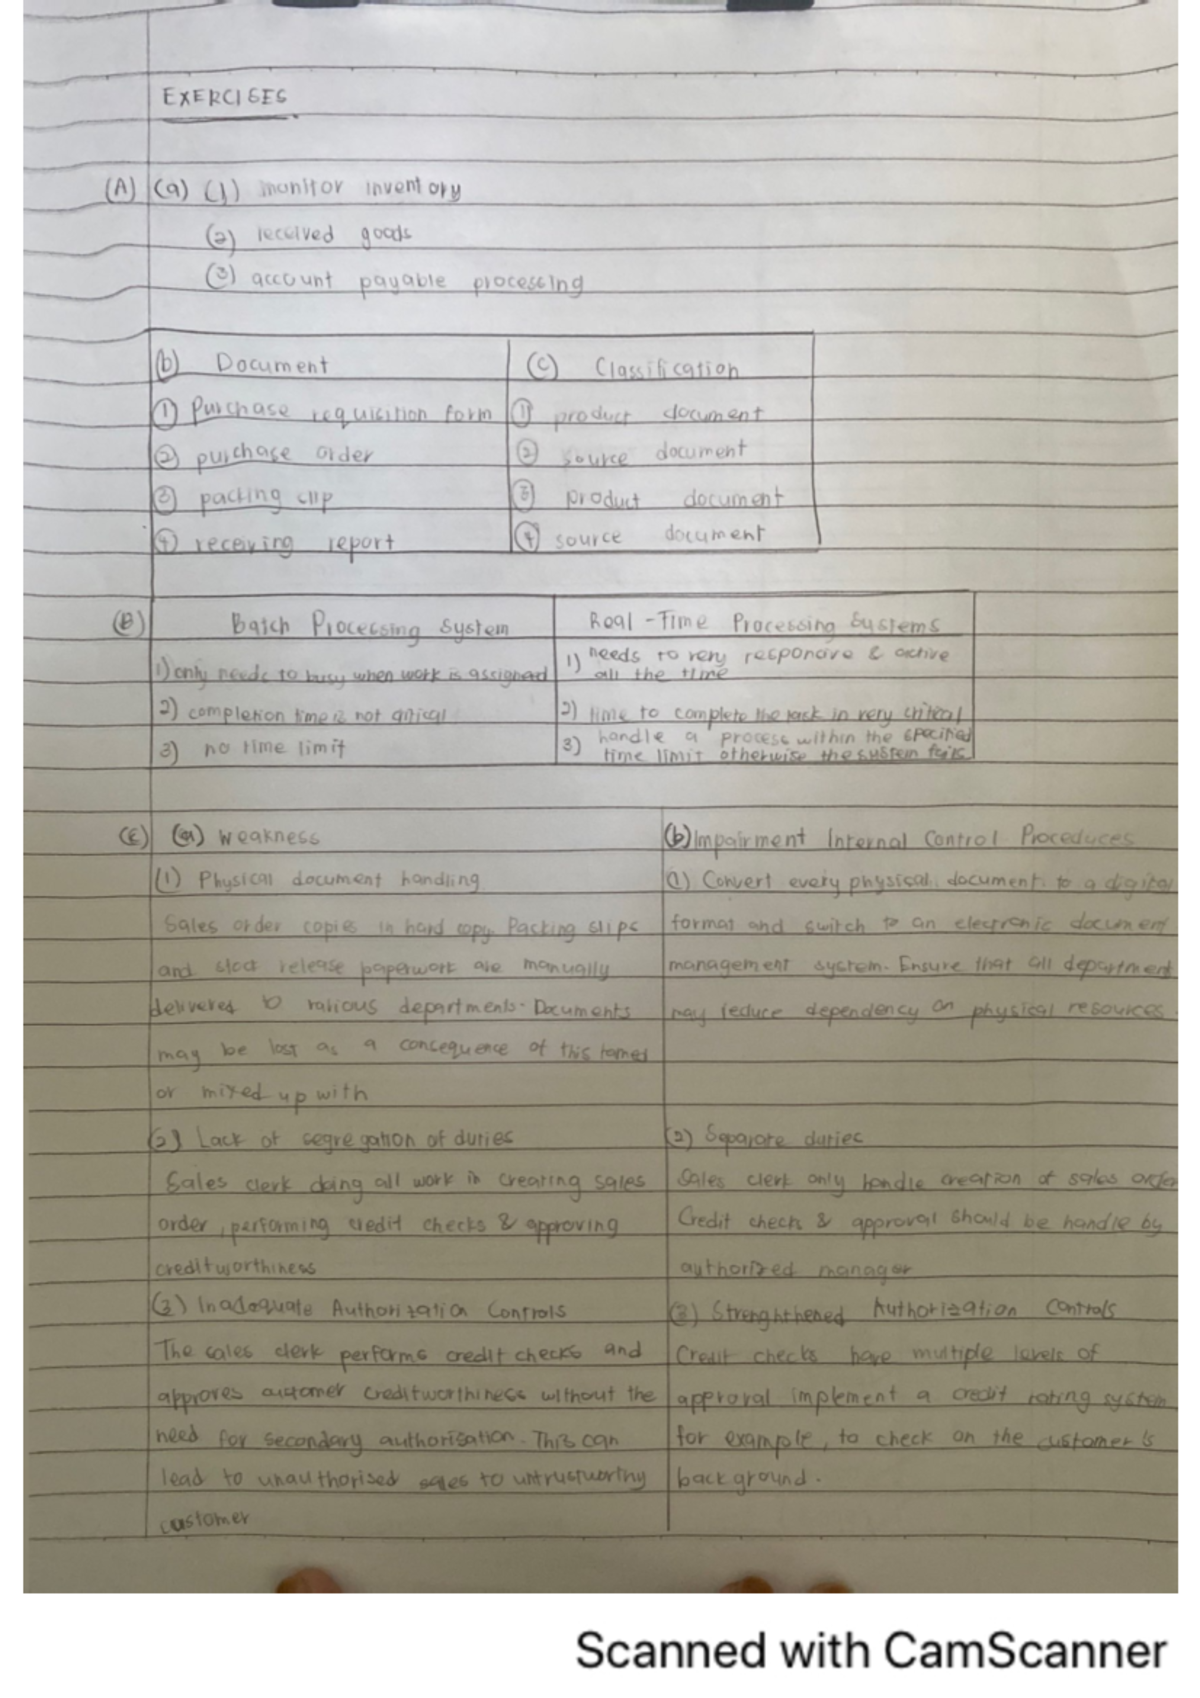 EXERCISES
(A) (a) (1) monitor inventory
(2) received goods
(3) account payable processing
(b) Document (c) Classification
① Purchase requisition form ① product document
② purchase order ② source document
③ packing slip ③ product document
④ receiving report ④ source document
(B) Batch Processing System Real-Time Processing Systems
1) only needs to busy when work is assigned 1) needs to very responsive & active all the time
2) completion time is not critical 2) time to complete the task in very critical
3) no time limit 3) handle a process within the specified time limit otherwise the system fails
(E) (a) Weakness (b) Impairment Internal Control Proceduces
(1) Physical document handling (1) Convert every physical document to a digital
Sales order copies in hard copy. Packing slips format and switch to an electronic document
and stock release paperwork are manually management system. Ensure that all department
delivered to various departments. Documents may reduce dependency on physical resources.
may be lost as a consequence of this
or mixed up with
(2) Lack of segregation of duties (2) Separate duties
Sales clerk doing all work in creating sales Sales clerk only handle creation of sales order
order, performing credit checks & approving Credit check & approval should be handle by
creditworthiness authorized manager
(3) Inadequate Authorization Controls (3) Strenghthened Authorization Controls
The sales clerk performs credit checks and Credit checks have multiple levels of
approves customer creditworthiness without the approval implement a credit rating system
need for secondary authorisation. This can for example, to check on the customer's
lead to unauthorised sales to untrustworthy background.
customer
Scanned with CamScanner